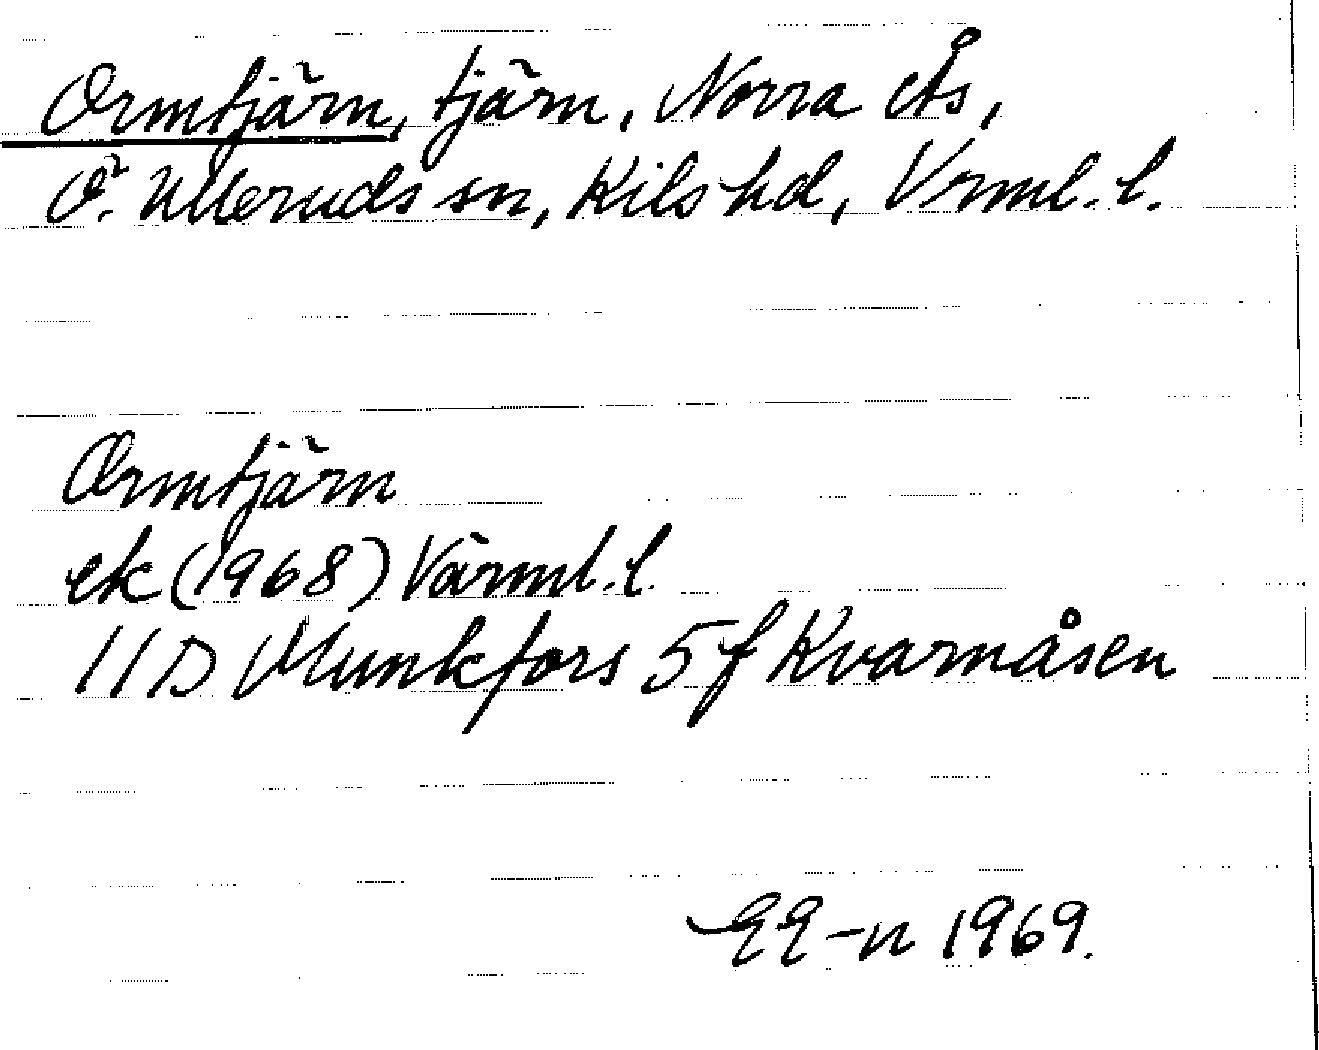 Ormtjärn, tjärn, Norra Ås,
Ö. Ulleruds sn, Kils hd, Vrml. l.
Ormtjärn
ek (1968) Värml. l.
11D Munkfors 5 f Kvarnåsen
EE-n 1969.